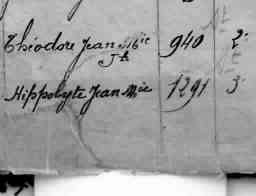 Théodore Jean Mie 940 2
Jh
Hippolyte Jean Mie 1291 3